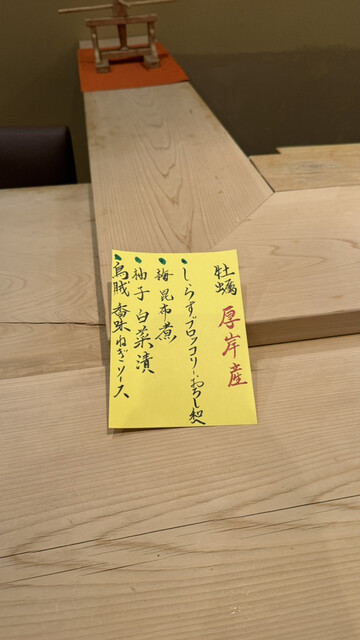 牡蠣 厚岸産
しらすブロッコリーおろし和え
鮑 昆布煮
柚子 白菜漬
烏賊 香味ねぎソース